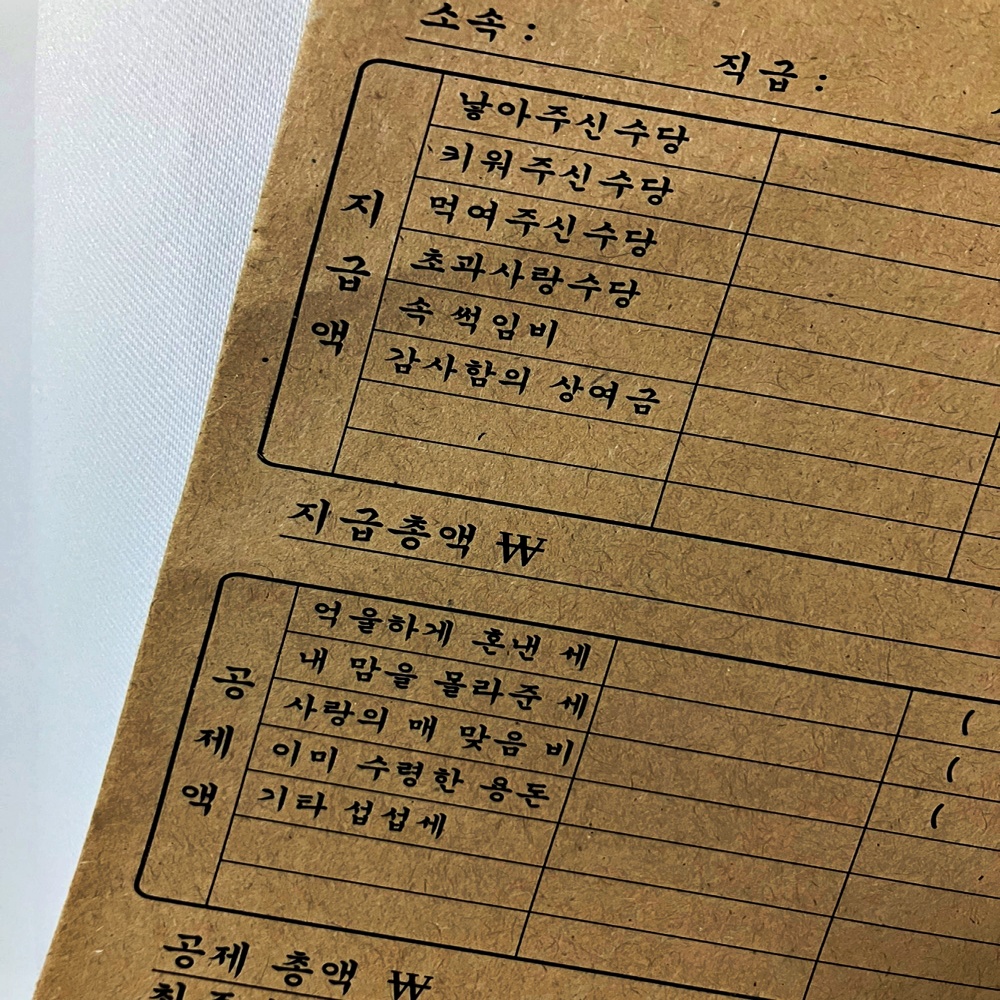 소속 :
직급 :
지급액
낳아주신수당
키워주신수당
먹여주신수당
초과사랑수당
속 썩임비
감사함의 상여금
지급총액 ₩
공제액
억울하게 혼낸 세
내 맘을 몰라준 세
사랑의 매 맞음 비
이미 수령한 용돈
기타 섭섭세
(
(
(
공제 총액 ₩